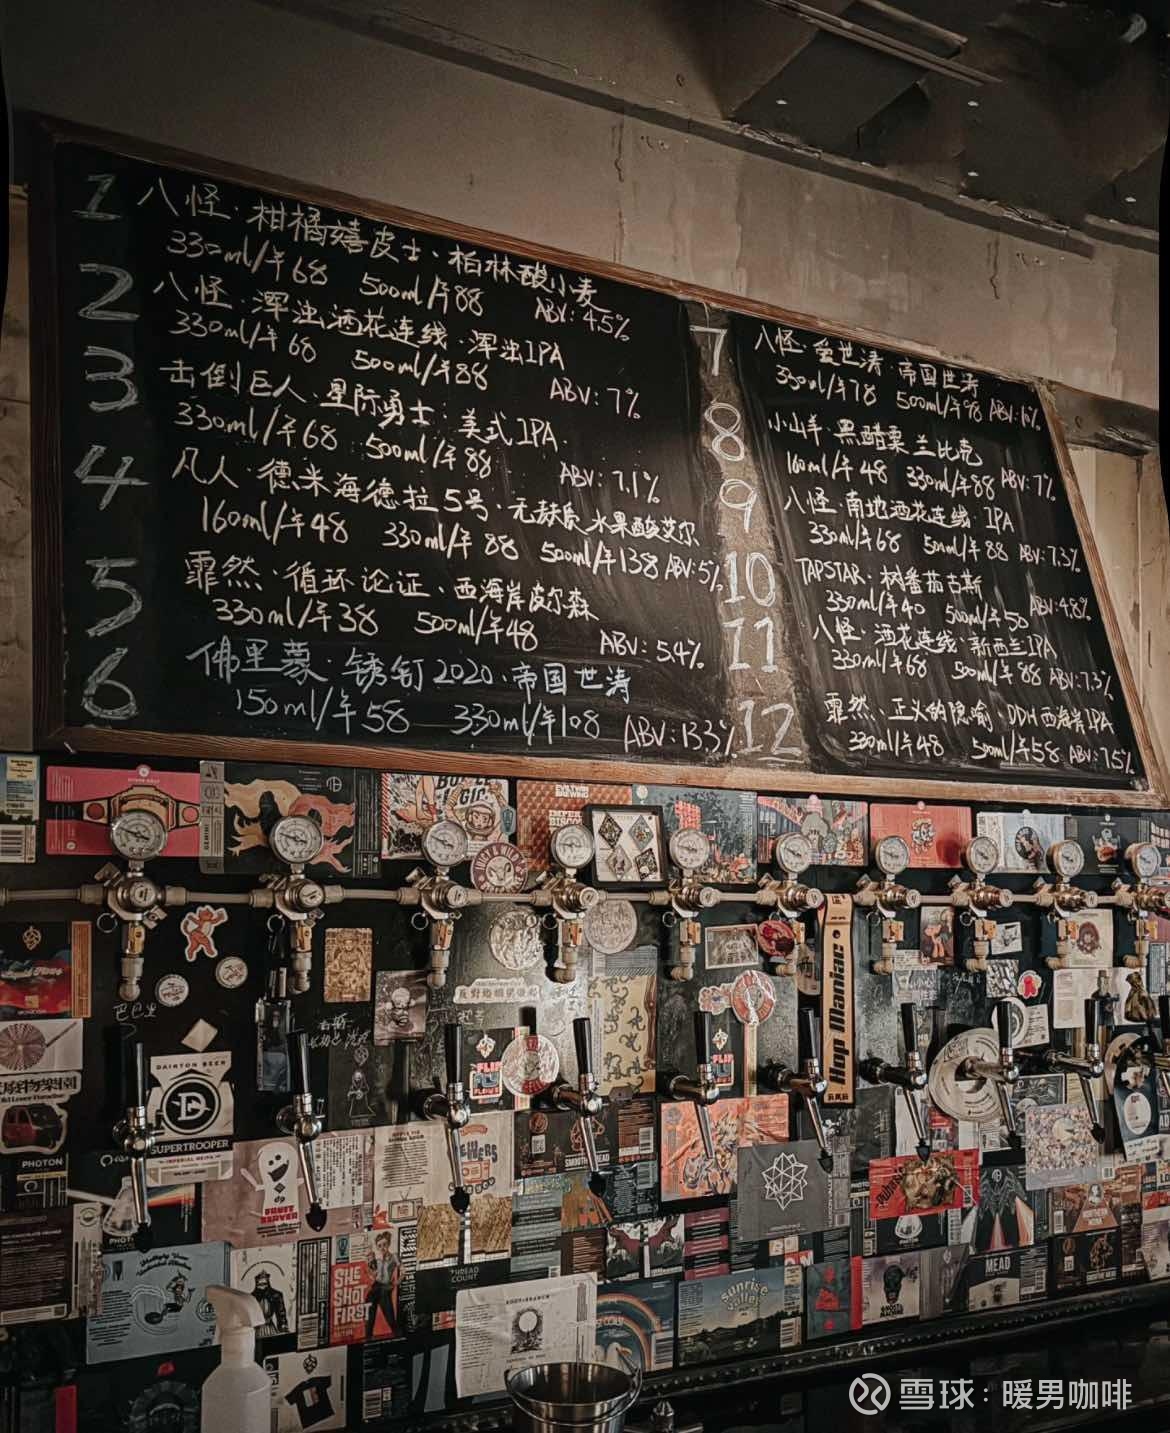 1 八怪·柑橘嬉皮士·柏林酸小麦
330ml/¥68 500ml/¥88 ABV:4.5%
2 八怪·浑浊酒花连线·浑浊IPA
330ml/¥68 500ml/¥88 ABV:7%
3 击倒巨人·星际勇士:美式IPA.
330ml/¥68 500ml/¥88 ABV:7.1%
4 凡人·德米海德拉5号·无麸质水果酸艾尔
160ml/¥48 330ml/¥88 500ml/¥138 ABV:5%
5 霏然·循环论证·西海岸皮尔森
330ml/¥38 500ml/¥48 ABV:5.4%
6 佛里蒙·锈钉2020·帝国世涛
150ml/¥58 330ml/¥108 ABV:13.3%
7 八怪·爱世涛·帝国世涛
330ml/¥78 500ml/¥98 ABV:10%
8 小山羊·黑醋栗兰比克
160ml/¥48 330ml/¥88 ABV:7%
9 八怪·南地酒花连线·IPA
330ml/¥68 500ml/¥88 ABV:7.3%
10 TAPSTAR·树番茄古斯
330ml/¥40 500ml/¥50 ABV:4.8%
11 八怪·酒花连线·新西兰IPA
330ml/¥68 500ml/¥88 ABV:7.3%
12 霏然·正义的隐喻·DDH西海岸IPA
330ml/¥48 500ml/¥58 ABV:7.5%
Hop Maniacs
DAINTON BEER
D
SUPERTROOPER
PHOTON
FRUIT
SHE
SHOT
FIRST
THREAD
COUNT
sunrise
valley
MEAD
雪球:暖男咖啡